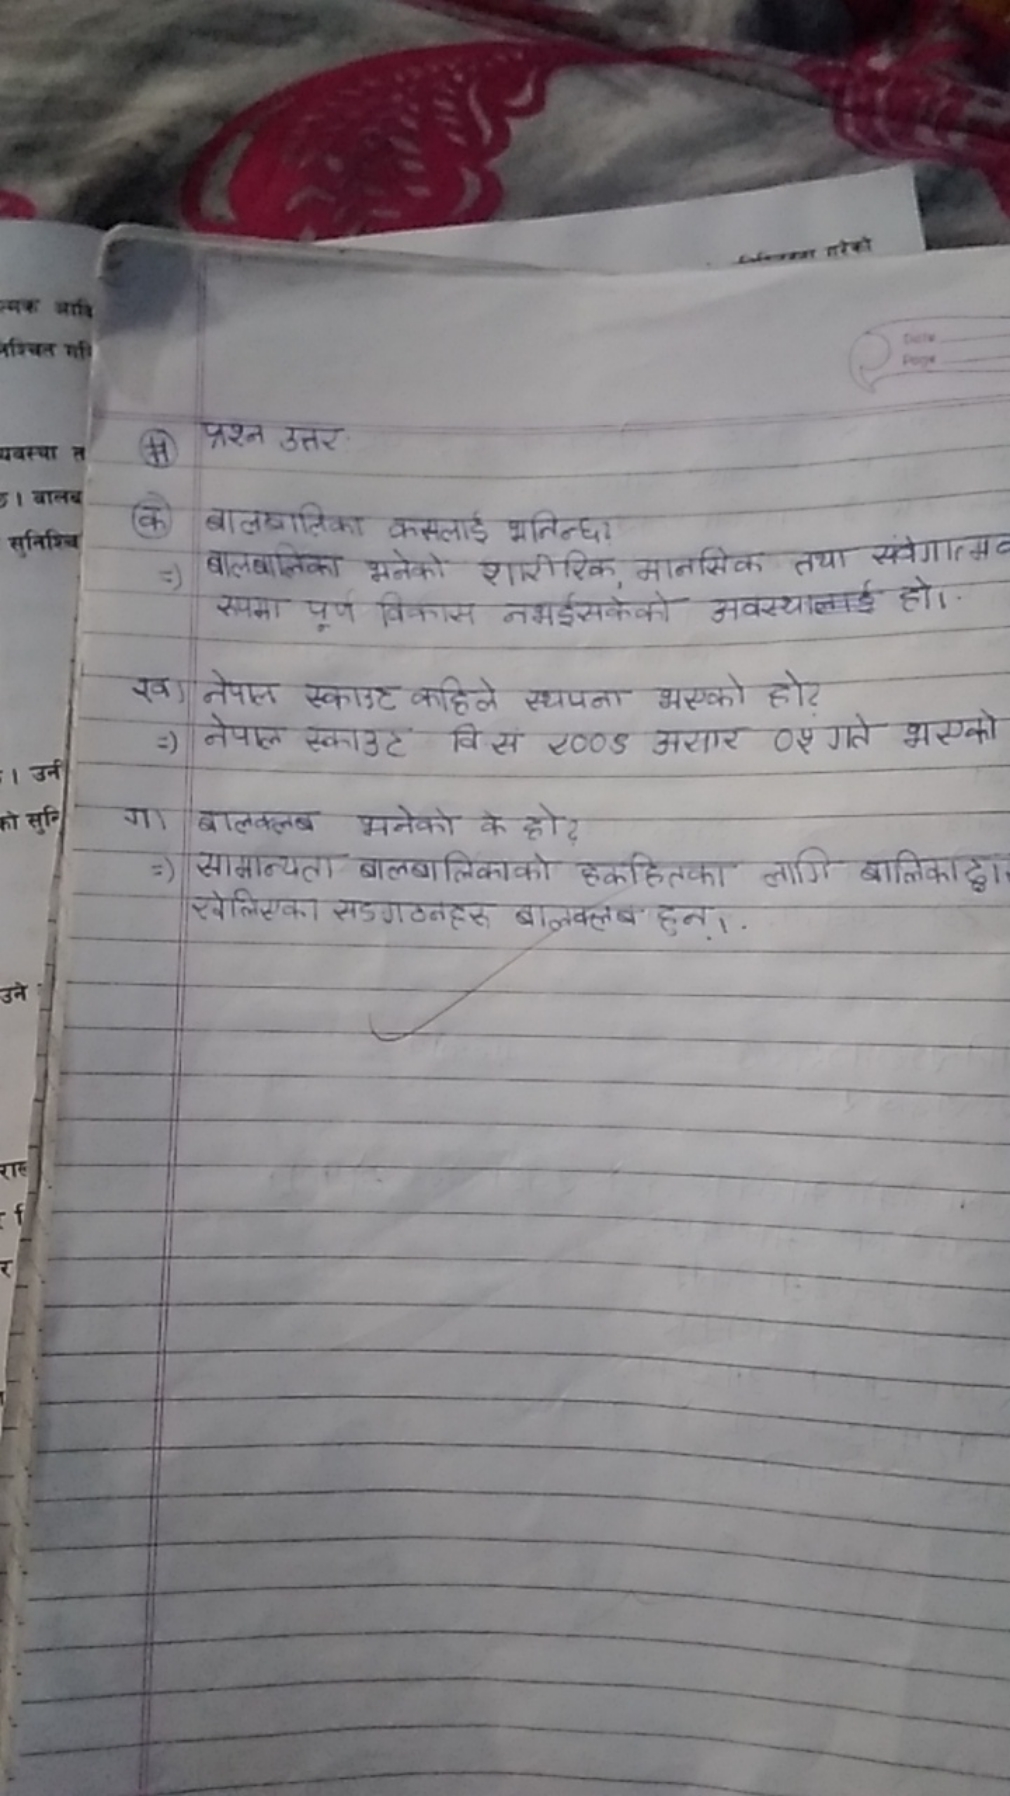 गरेको
Date
Page
प्रश्न उत्तर
क बालबालिका कसलाई भनिन्छ?
=) बालबालिका भनेको शारीरिक, मानसिक तथा संवेगात्मक
रुपमा पूर्ण विकास नभईसकेको अवस्थालाई हो।
ख) नेपाल स्काउट कहिले स्थपना भएको हो?
=) नेपाल स्काउट वि सं २००९ असार गते भएको
ग। बालक्लब भनेको के हो?
=) सामान्यता बालबालिकाको हकहितका लागि बालिकाद्वा
खोलिएका सङगठनहरु बालक्लब हुन्।
व्यवस्था त
। बालब
सुनिश्चि
। उनी
को सुनि
उने